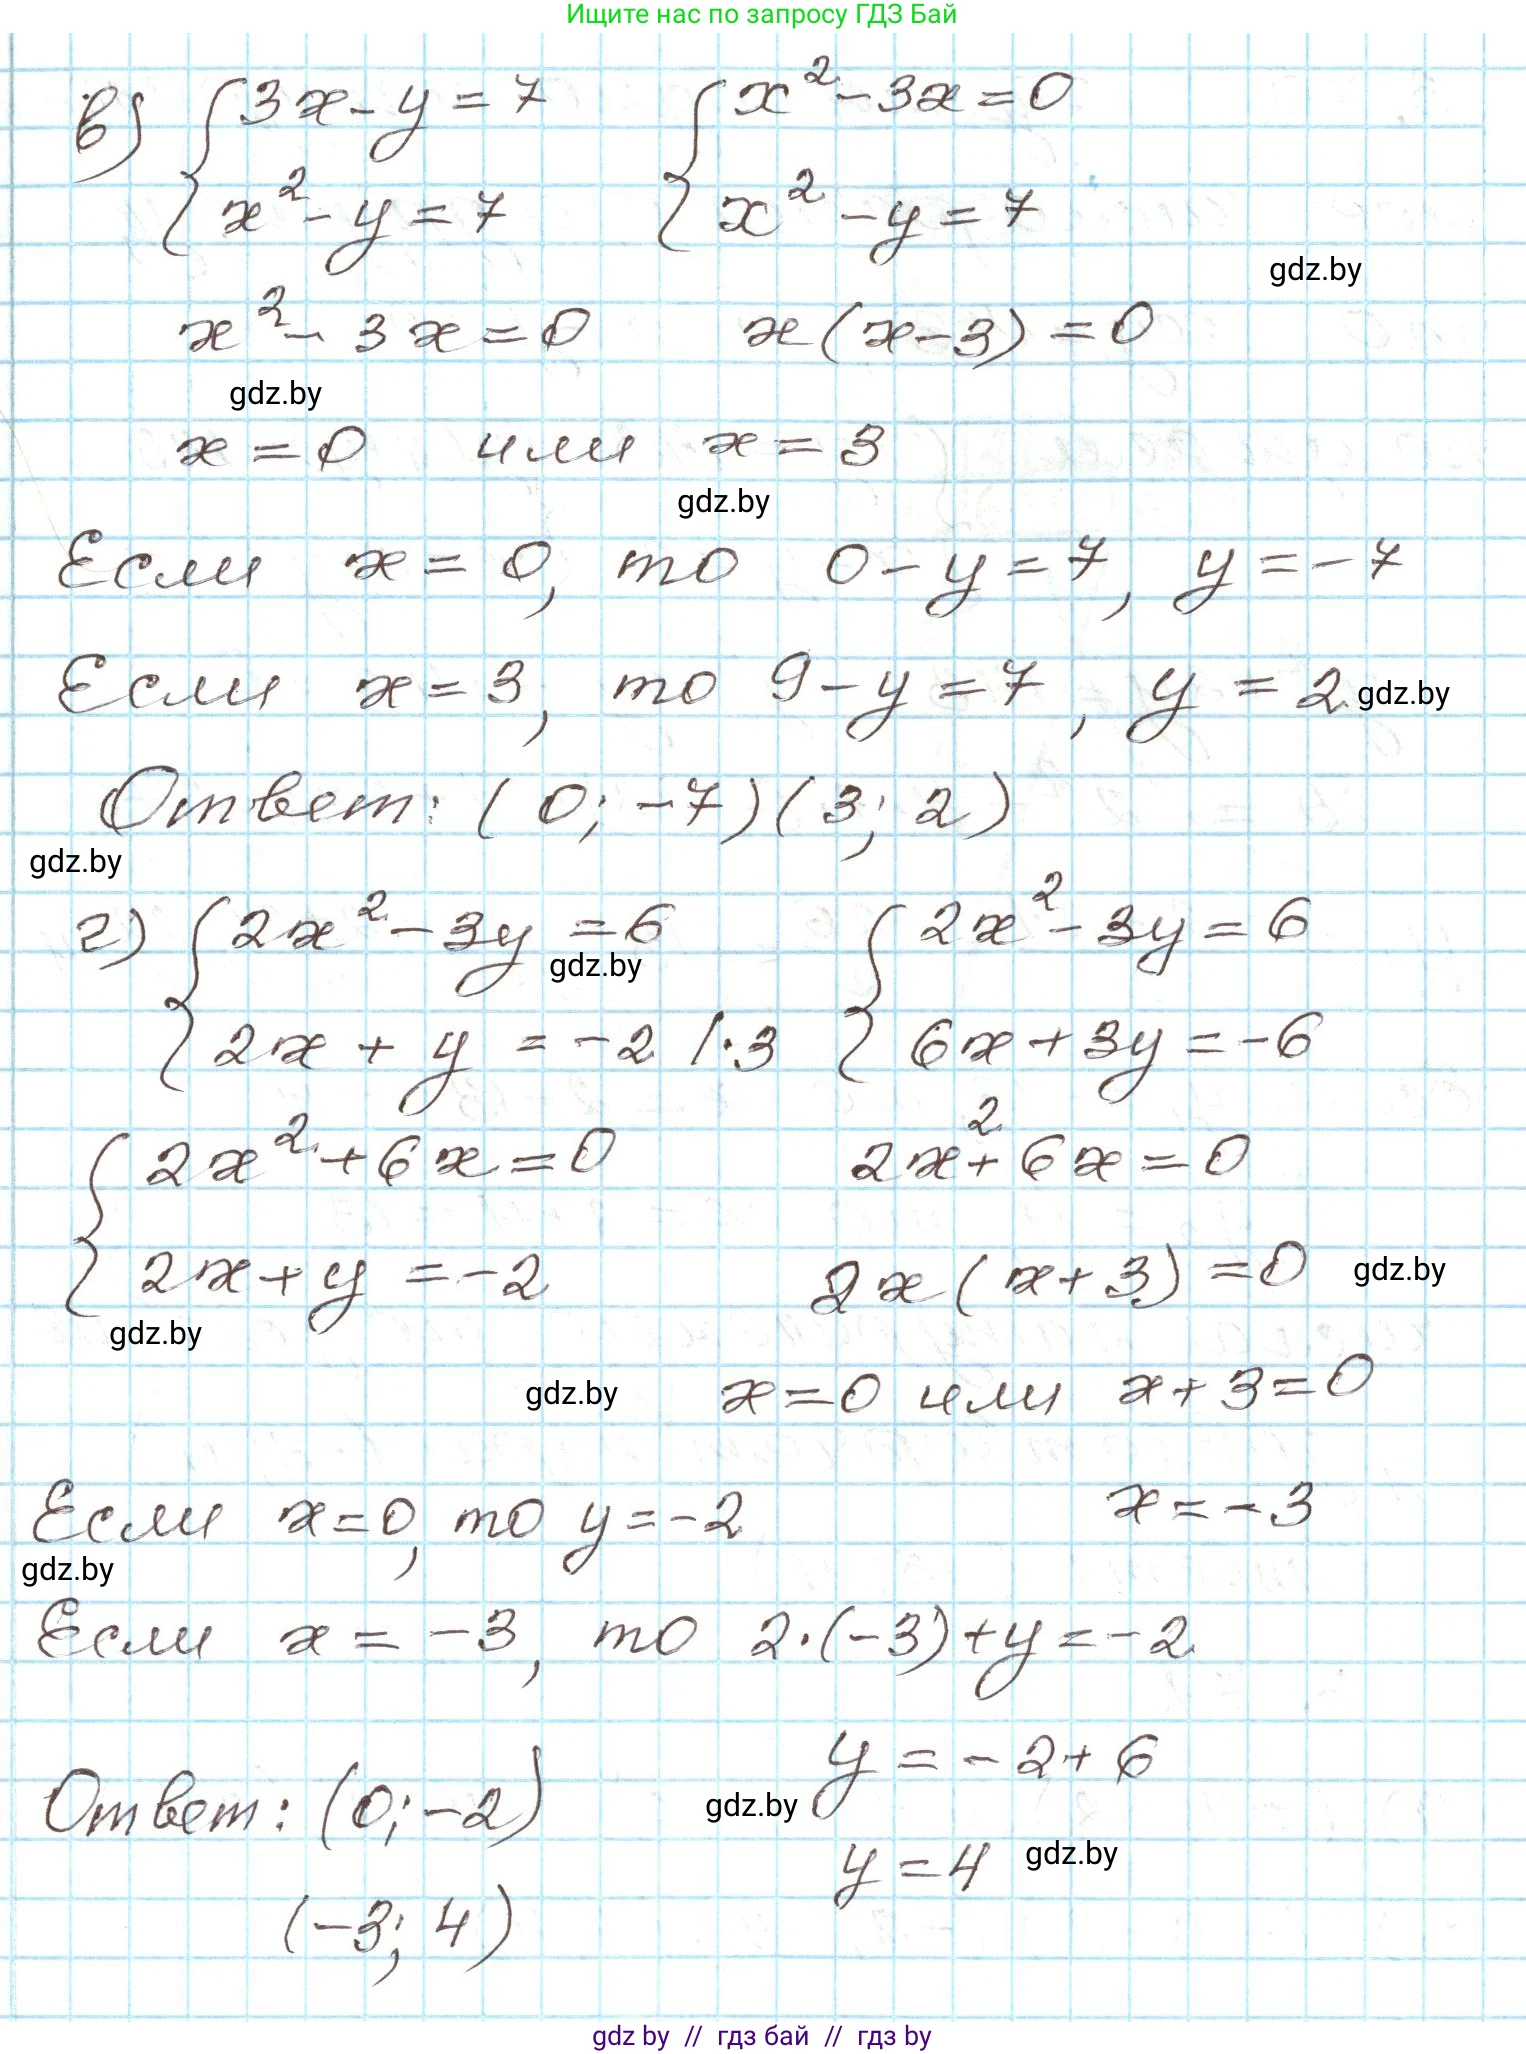 Ищите нас по запросу ГДЗ Бай
в) { 3x - y = 7 { x² - 3x = 0
x² - y = 7 x² - y = 7
gdz.by
x² - 3x = 0 x(x - 3) = 0
gdz.by
x = 0 или x = 3
gdz.by
Если x = 0, то 0 - y = 7, y = -7
Если x = 3, то 9 - y = 7, y = 2 gdz.by
Ответ: (0; -7) (3; 2)
gdz.by
г) { 2x² - 3y = 6 { 2x² - 3y = 6
gdz.by
2x + y = -2 | · 3 6x + 3y = -6
{ 2x² + 6x = 0 2x² + 6x = 0
2x + y = -2 2x(x + 3) = 0 gdz.by
gdz.by
gdz.by x = 0 или x + 3 = 0
Если x = 0, то y = -2 x = -3
gdz.by
Если x = -3, то 2 · (-3) + y = -2
y = -2 + 6
Ответ: (0; -2) gdz.by
y = 4 gdz.by
(-3; 4)
gdz by // гдз бай // гдз by